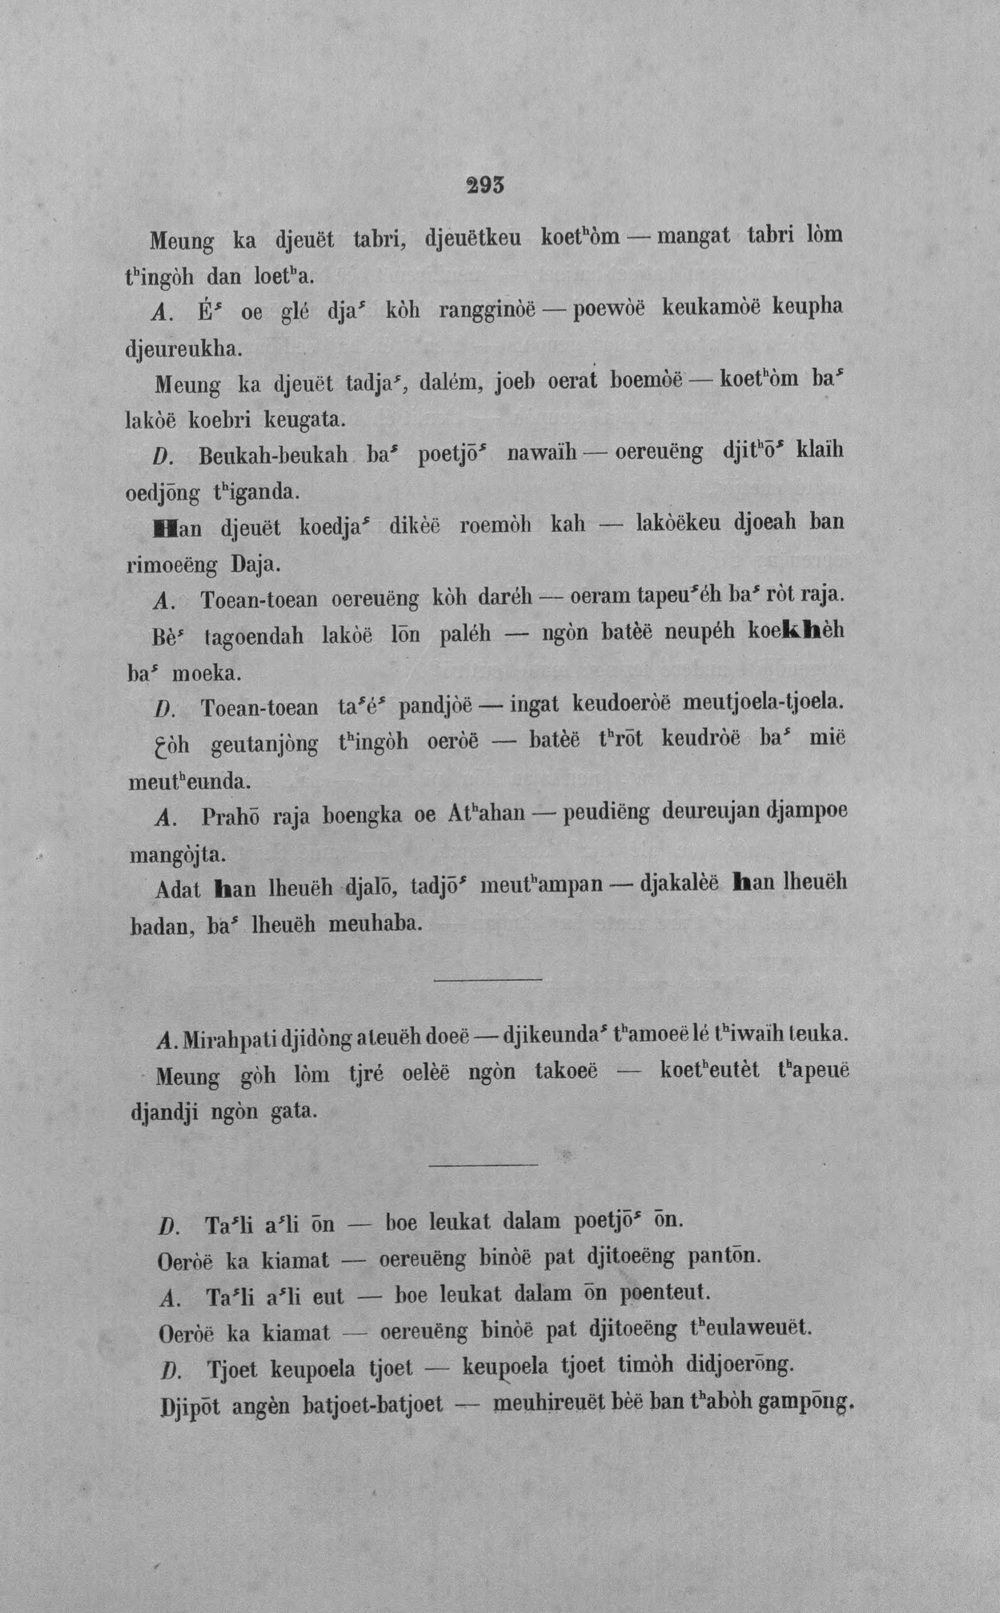 293
Meung ka djeuët tabri, djeuëtkeu koetʰòm — mangat tabri lòm
tʰingòh dan loetʰa.
A. Éˢ oe glé djaˢ kòh rangginòë — poewòë keukamòë keupha
djeureukha.
Meung ka djeuët tadjaˢ, dalém, joeb oerat boemòë — koetʰòm baˢ
lakòë koebri keugata.
D. Beukah-beukah baˢ poetjōˢ nawaïh — oereuëng djitʰōˢ klaïh
oedjōng tʰiganda.
Han djeuët koedjaˢ dikèë roemòh kah — lakòëkeu djoeah ban
rimoeëng Daja.
A. Toean-toean oereuëng kòh daréh — oeram tapeuˢéh baˢ ròt raja.
Bèˢ tagoendah lakòë lōn paléh — ngòn batèë neupéh koekhèh
baˢ moeka.
D. Toean-toean taˢéˢ pandjòë — ingat keudoeròë meutjoela-tjoela.
geutanjòng tʰingòh oeròë — batèë tʰrōt keudròë baˢ mië
meutʰeunda.
A. Prahō raja boengka oe Atʰahan — peudiëng deureujan djampoe
mangòjta.
Adat han lheuëh djalō, tadjōˢ meutʰampan — djakalèë han lheuëh
badan, baˢ lheuëh meuhaba.
A. Mirahpati djidòng ateuëh doeë — djikeundaˢ tʰamoeë lé tʰiwaïh teuka.
Meung gòh lòm tjré oelèë ngòn takoeë — koetʰeutèt tʰapeuë
djandji ngòn gata.
D. Taˢli aˢli ōn — boe leukat dalam poetjōˢ ōn.
Oeròë ka kiamat — oereuëng binòë pat djitoeëng pantōn.
A. Taˢli aˢli eut — boe leukat dalam ōn poenteut.
Oeròë ka kiamat — oereuëng binòë pat djitoeëng tʰeulaweuët.
D. Tjoet keupoela tjoet — keupoela tjoet timòh didjoerōng.
Djipōt angèn batjoet-batjoet — meuhireuët bèë ban tʰabòh gampōng.